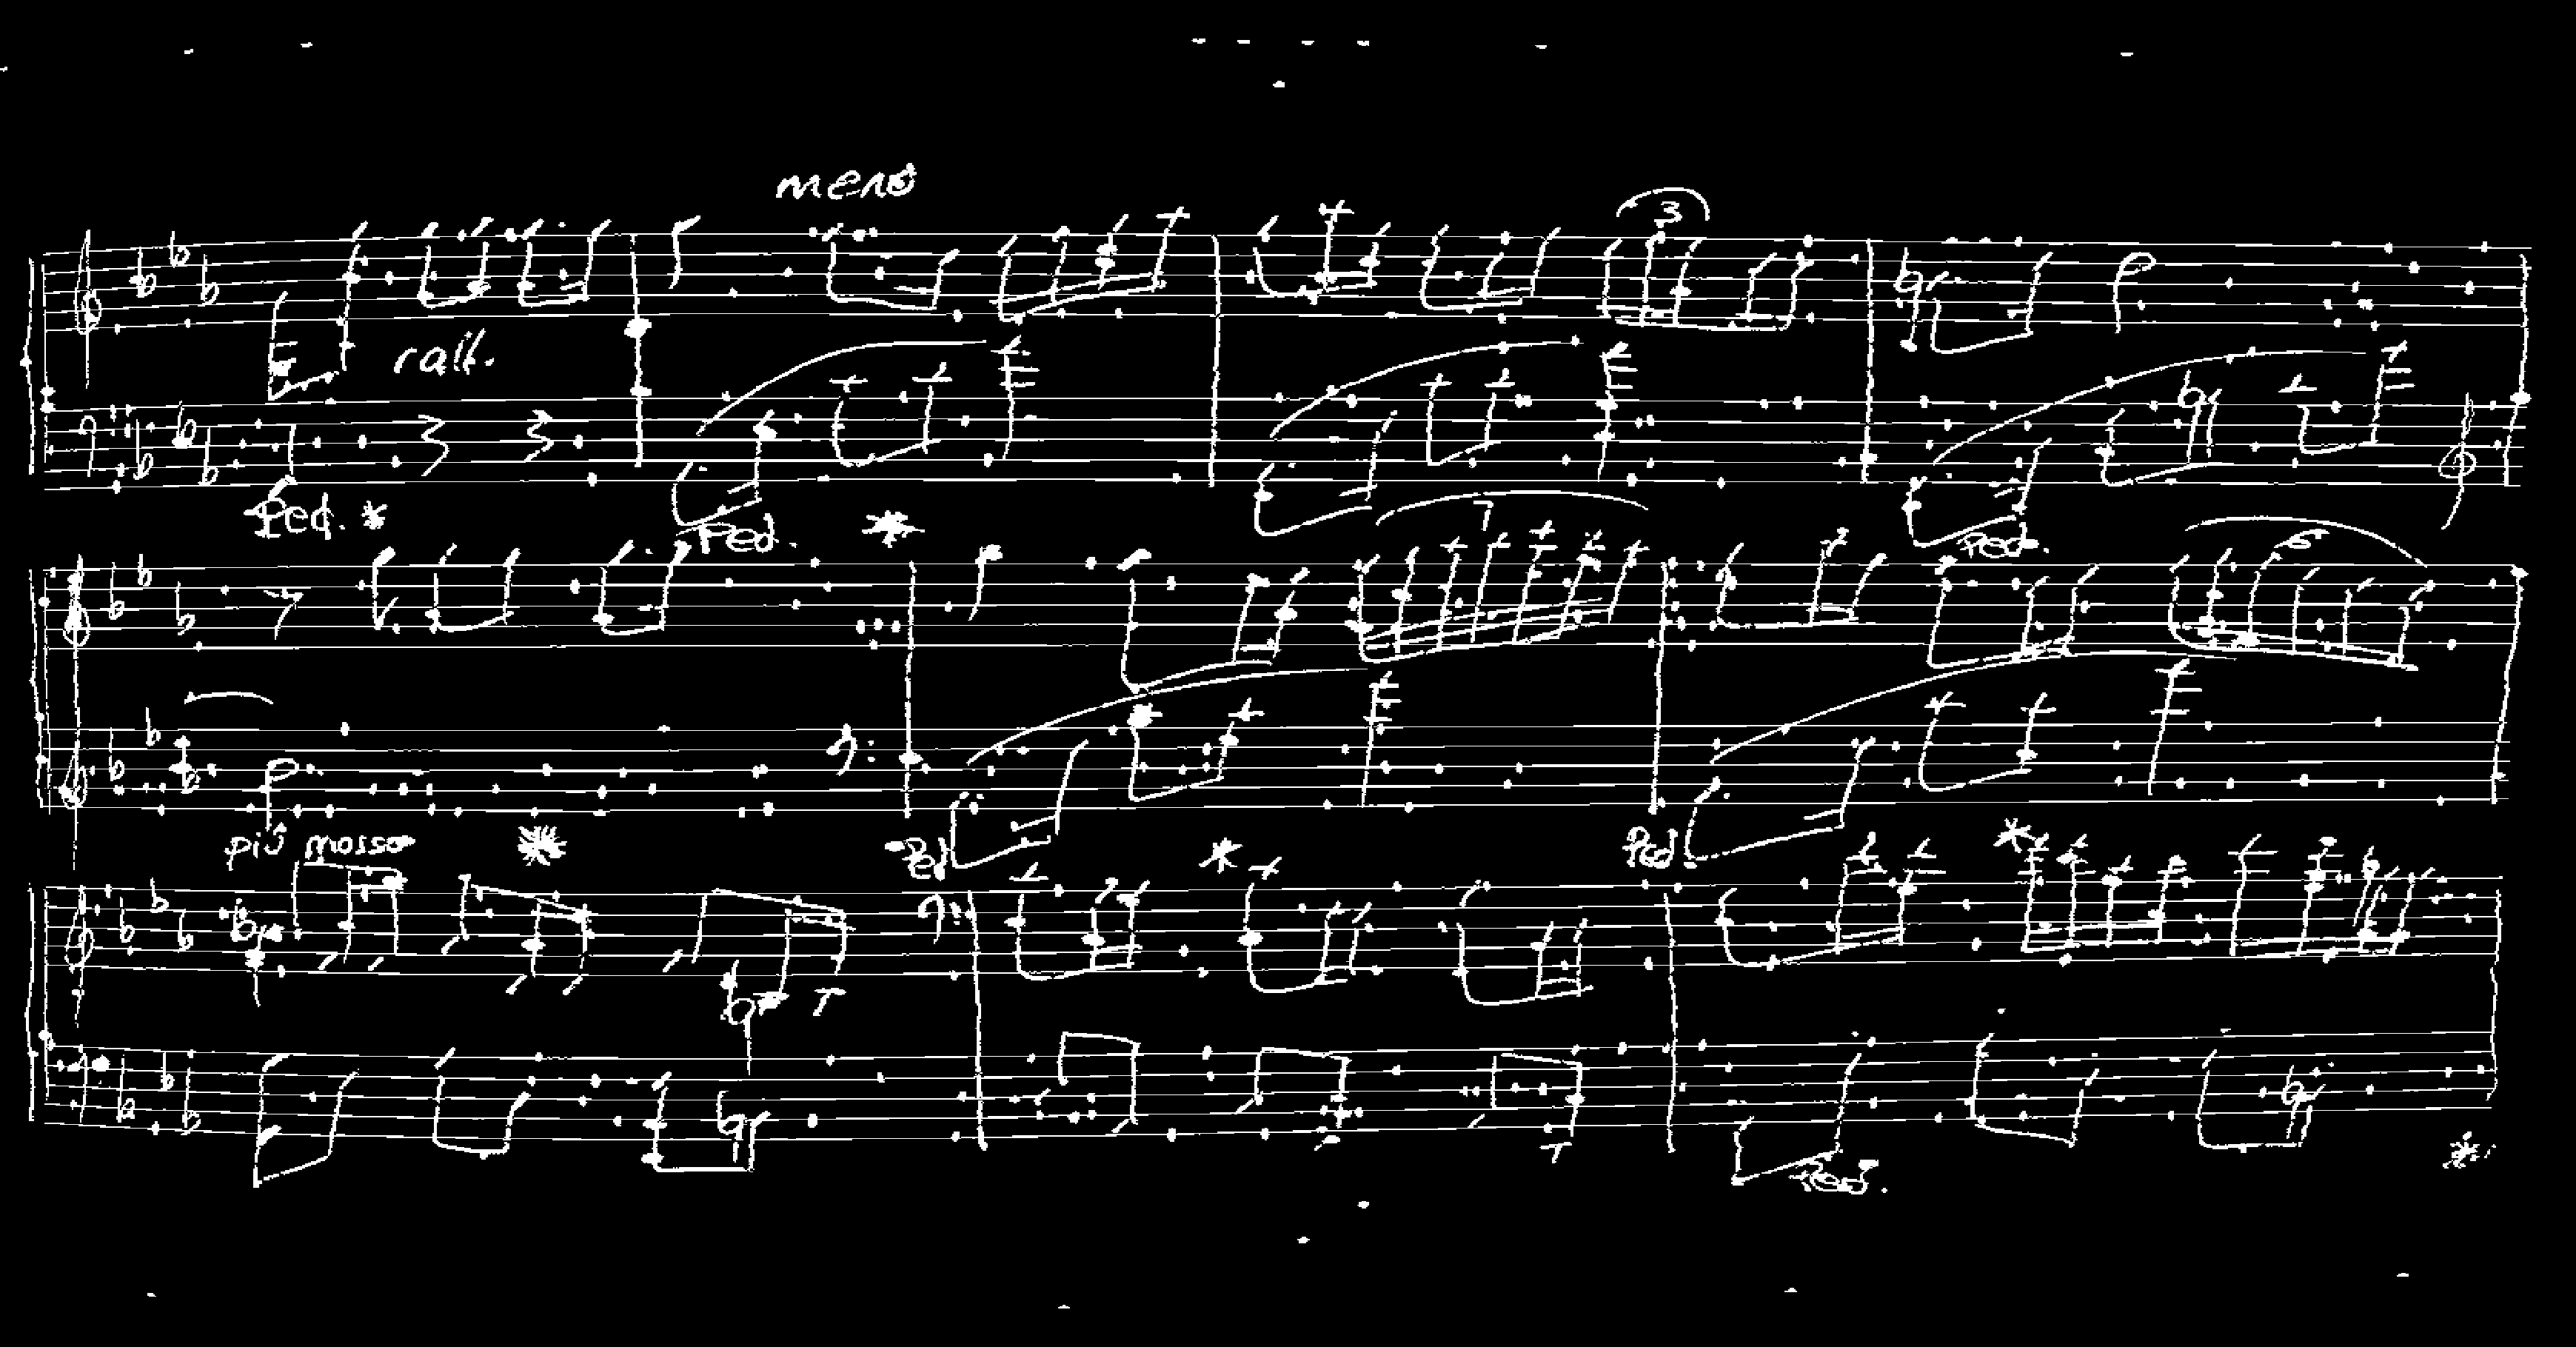 meno
3
rall.
Ped. *
Ped. *
Ped.
7
6
più mosso
*
Ped *
Ped. *
Ped. *